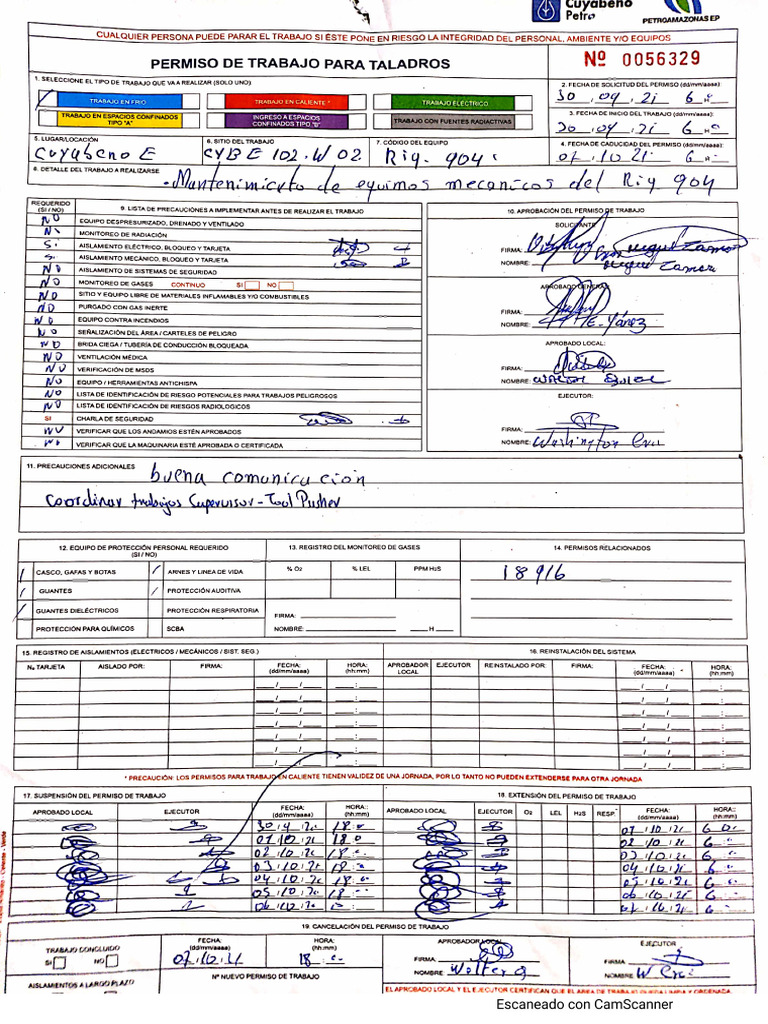 Cuyabeno
Petro
PETROAMAZONAS EP
CUALQUIER PERSONA PUEDE PARAR EL TRABAJO SI ÉSTE PONE EN RIESGO LA INTEGRIDAD DEL PERSONAL, AMBIENTE Y/O EQUIPOS
PERMISO DE TRABAJO PARA TALADROS
Nº 0056329
1. SELECCIONE EL TIPO DE TRABAJO QUE VA A REALIZAR (SOLO UNO)
TRABAJO EN FRIO
TRABAJO EN CALIENTE *
TRABAJO ELÉCTRICO
TRABAJO EN ESPACIOS CONFINADOS TIPO "A"
INGRESO A ESPACIOS CONFINADOS TIPO "B"
TRABAJO CON FUENTES RADIACTIVAS
2. FECHA DE SOLICITUD DEL PERMISO (dd/mm/aaaa)
30 09 21 6 H
3. FECHA DE INICIO DEL TRABAJO (dd/mm/aaaa)
30 09 21 6 H
4. FECHA DE CADUCIDAD DEL PERMISO (dd/mm/aaaa)
07 10 21 6 H
5. LUGAR/LOCACIÓN
Cuyabeno E
6. SITIO DEL TRABAJO
CYBE 102. W 02.
7. CÓDIGO DEL EQUIPO
Rig. 904
8. DETALLE DEL TRABAJO A REALIZARSE
Mantenimiento de equipos mecanicos del Rig 904
REQUERIDO (SI / NO)
9. LISTA DE PRECAUCIONES A IMPLEMENTAR ANTES DE REALIZAR EL TRABAJO
NO EQUIPO DESPRESURIZADO, DRENADO Y VENTILADO
MONITOREO DE RADIACIÓN
Si AISLAMIENTO ELÉCTRICO, BLOQUEO Y TARJETA
Si AISLAMIENTO MECÁNICO, BLOQUEO Y TARJETA
NO AISLAMIENTO DE SISTEMAS DE SEGURIDAD
NO MONITOREO DE GASES CONTINUO SI NO
NO SITIO Y EQUIPO LIBRE DE MATERIALES INFLAMABLES Y/O COMBUSTIBLES
NO PURGADO CON GAS INERTE
NO EQUIPO CONTRA INCENDIOS
NO SEÑALIZACIÓN DEL ÁREA / CARTELES DE PELIGRO
NO BRIDA CIEGA / TUBERÍA DE CONDUCCIÓN BLOQUEADA
NO VENTILACIÓN MÉDICA
NO VERIFICACIÓN DE MSDS
NO EQUIPO / HERRAMIENTAS ANTICHISPA
NO LISTA DE IDENTIFICACIÓN DE RIESGO POTENCIALES PARA TRABAJOS PELIGROSOS
NO LISTA DE IDENTIFICACIÓN DE RIESGOS RADIOLOGICOS
SI CHARLA DE SEGURIDAD
NO VERIFICAR QUE LOS ANDAMIOS ESTÉN APROBADOS
NO VERIFICAR QUE LA MAQUINARIA ESTÉ APROBADA O CERTIFICADA
10. APROBACIÓN DEL PERMISO DE TRABAJO
SOLICITANTE
FIRMA:
NOMBRE: Miguel Zamora
APROBADO GENERAL
FIRMA:
NOMBRE: E. Yánez
APROBADO LOCAL:
FIRMA:
NOMBRE: Walter
EJECUTOR:
FIRMA:
NOMBRE: Washington Cruz
11. PRECAUCIONES ADICIONALES
buena comunicación
Coordinar trabajos Supervisor - Tool Pusher
12. EQUIPO DE PROTECCIÓN PERSONAL REQUERIDO (SI / NO)
CASCO, GAFAS Y BOTAS
ARNES Y LINEA DE VIDA
GUANTES
PROTECCIÓN AUDITIVA
GUANTES DIELÉCTRICOS
PROTECCIÓN RESPIRATORIA
PROTECCIÓN PARA QUÍMICOS
SCBA
13. REGISTRO DEL MONITOREO DE GASES
% O2 % LEL PPM H2S
FIRMA:
NOMBRE: H
14. PERMISOS RELACIONADOS
18916
15. REGISTRO DE AISLAMIENTOS (ELÉCTRICOS / MECÁNICOS / SIST. SEG.)
Nº TARJETA AISLADO POR: FIRMA: FECHA: (dd/mm/aaaa) HORA: (hh:mm)
16. REINSTALACIÓN DEL SISTEMA
APROBADOR LOCAL EJECUTOR REINSTALADO POR: FIRMA: FECHA: (dd/mm/aaaa) HORA: (hh:mm)
* PRECAUCIÓN: LOS PERMISOS PARA TRABAJO EN CALIENTE TIENEN VALIDEZ DE UNA JORNADA, POR LO TANTO NO PUEDEN EXTENDERSE PARA OTRA JORNADA
17. SUSPENSIÓN DEL PERMISO DE TRABAJO
APROBADO LOCAL EJECUTOR FECHA: (dd/mm/aaaa) HORA:: (hh:mm)
18. EXTENSIÓN DEL PERMISO DE TRABAJO
APROBADO LOCAL EJECUTOR O2 LEL H2S RESP. FECHA: (dd/mm/aaaa) HORA:: (hh:mm)
19. CANCELACIÓN DEL PERMISO DE TRABAJO
TRABAJO CONCLUIDO
SI NO
FECHA: (dd/mm/aaaa)
07.10.21
HORA: (hh:mm)
18
APROBADOR LOCAL
FIRMA
NOMBRE Walter
EJECUTOR
FIRMA
NOMBRE W Cruz
AISLAMIENTOS A LARGO PLAZO
Nº NUEVO PERMISO DE TRABAJO
EL APROBADO LOCAL Y EL EJECUTOR CERTIFICAN QUE EL AREA DE TRABAJO QUEDA LIMPIA Y ORDENADA.
Escaneado con CamScanner